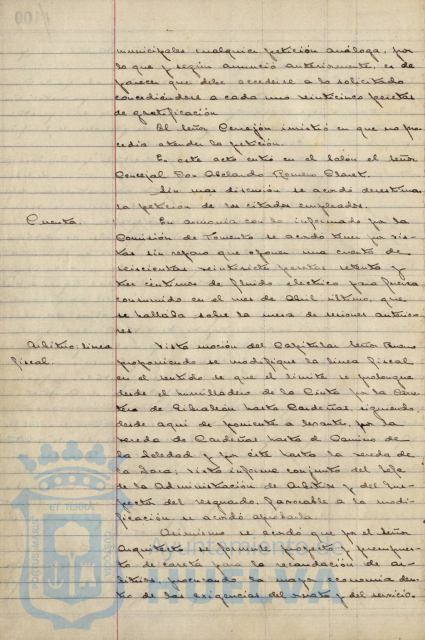 municipales cualquier petición análoga, por
lo que y según anunció anteriormente, es de
parecer que debe accederse a lo solicitado
concediéndose a cada uno veinticinco pesetas
de gratificación.
El Señor Cerrejón insistió en que no pro
cedía atender la petición.
En este acto entró en el Salón el Señor
Concejal Don Abelardo Romero Claret.
Sin mas discusión se acordó desestimar
la petición de los citados empleados.
Cuenta.
En armonía con lo informado por la
Comisión de Fomento se acordó tener por vis-
tas sin reparo que oponer una cuenta de
seiscientas veintisiete pesetas setenta y
tres céntimos de fluido eléctrico para fuerza
consumido en el mes de Abril último, que
se hallaba sobre la mesa de sesiones anterio-
res.
Arbitrio: línea
fiscal.
Vista moción del Capitular Señor Bueno
proponiendo se modifique la línea fiscal
en el sentido de que el límite se prolongue
desde el humilladero de la Cinta por la Carre
tera de Gibraleón hasta Cardeñas, siguiendo
desde aquí de poniente a levante, por la
vereda de Cardeñas hasta el Camino de
la Soledad y por éste hasta la vereda de
la ; visto informe conjunto del Jefe
de la Administración de Arbitrios y del Ins-
pector del resguardo, favorable a la modi-
ficación, se acordó aprobarla.
Asimismo se acordó que por el Señor
Arquitecto se formule proyecto y presupues-
to de caseta para la recaudación de ar-
bitrios, procurando la mayor economía den-
tro de las exigencias del ornato y del servicio.
Ayuntamiento de
HUELVA